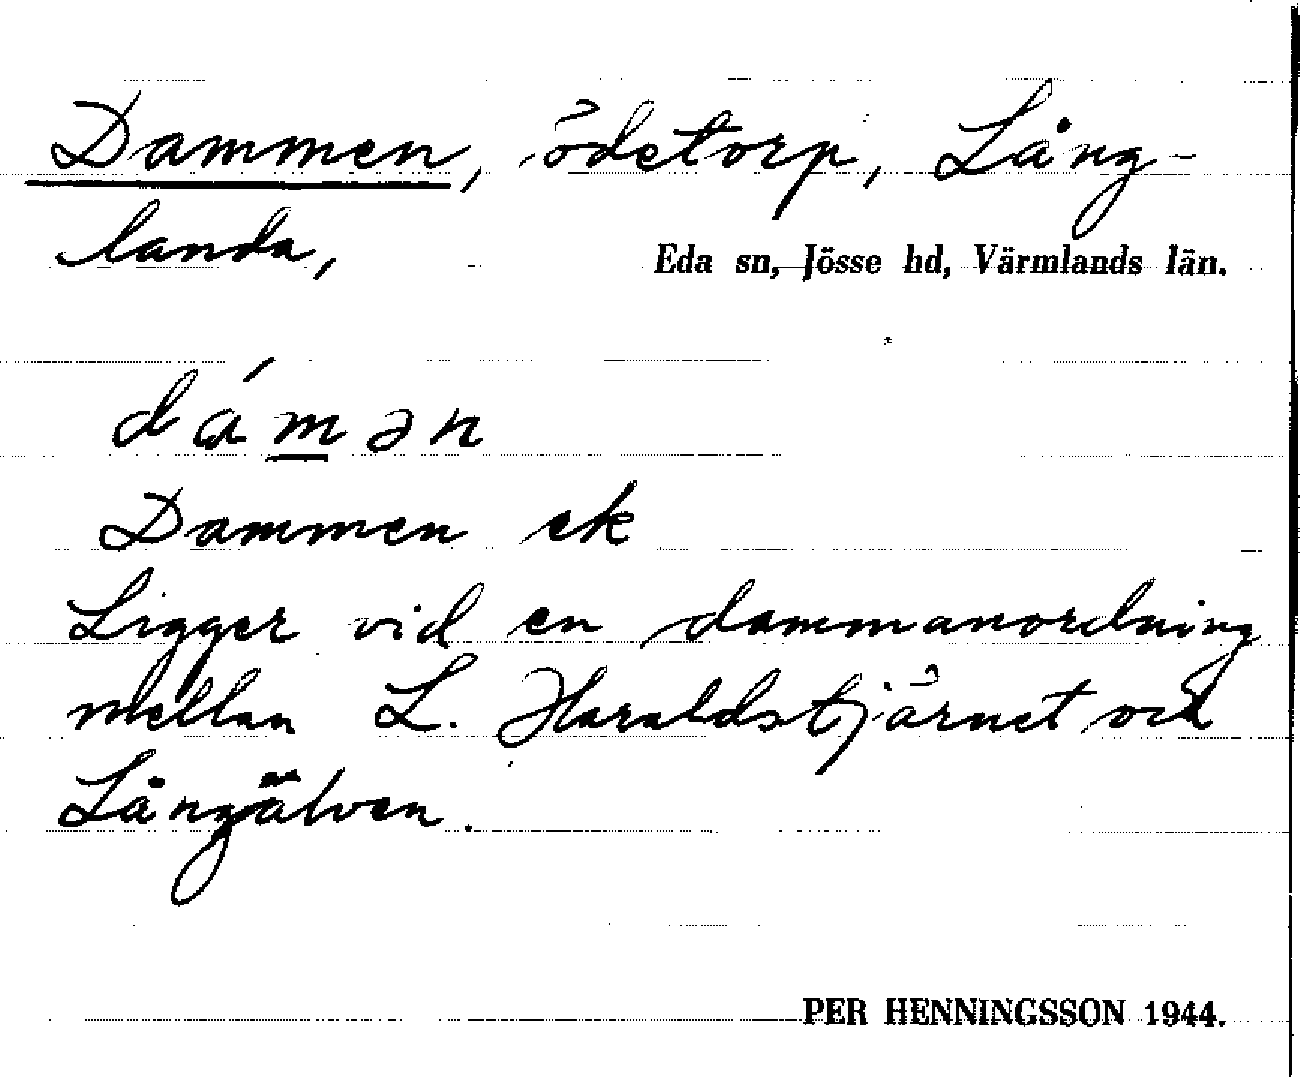 Dammen, ödetorp, Lång-
landa,
Eda sn, Jösse hd, Värmlands län.
dám̲ən
Dammen ek
Ligger vid en dammanordning
mellan L. Haraldstjärnet och
Långälven.
PER HENNINGSSON 1944.